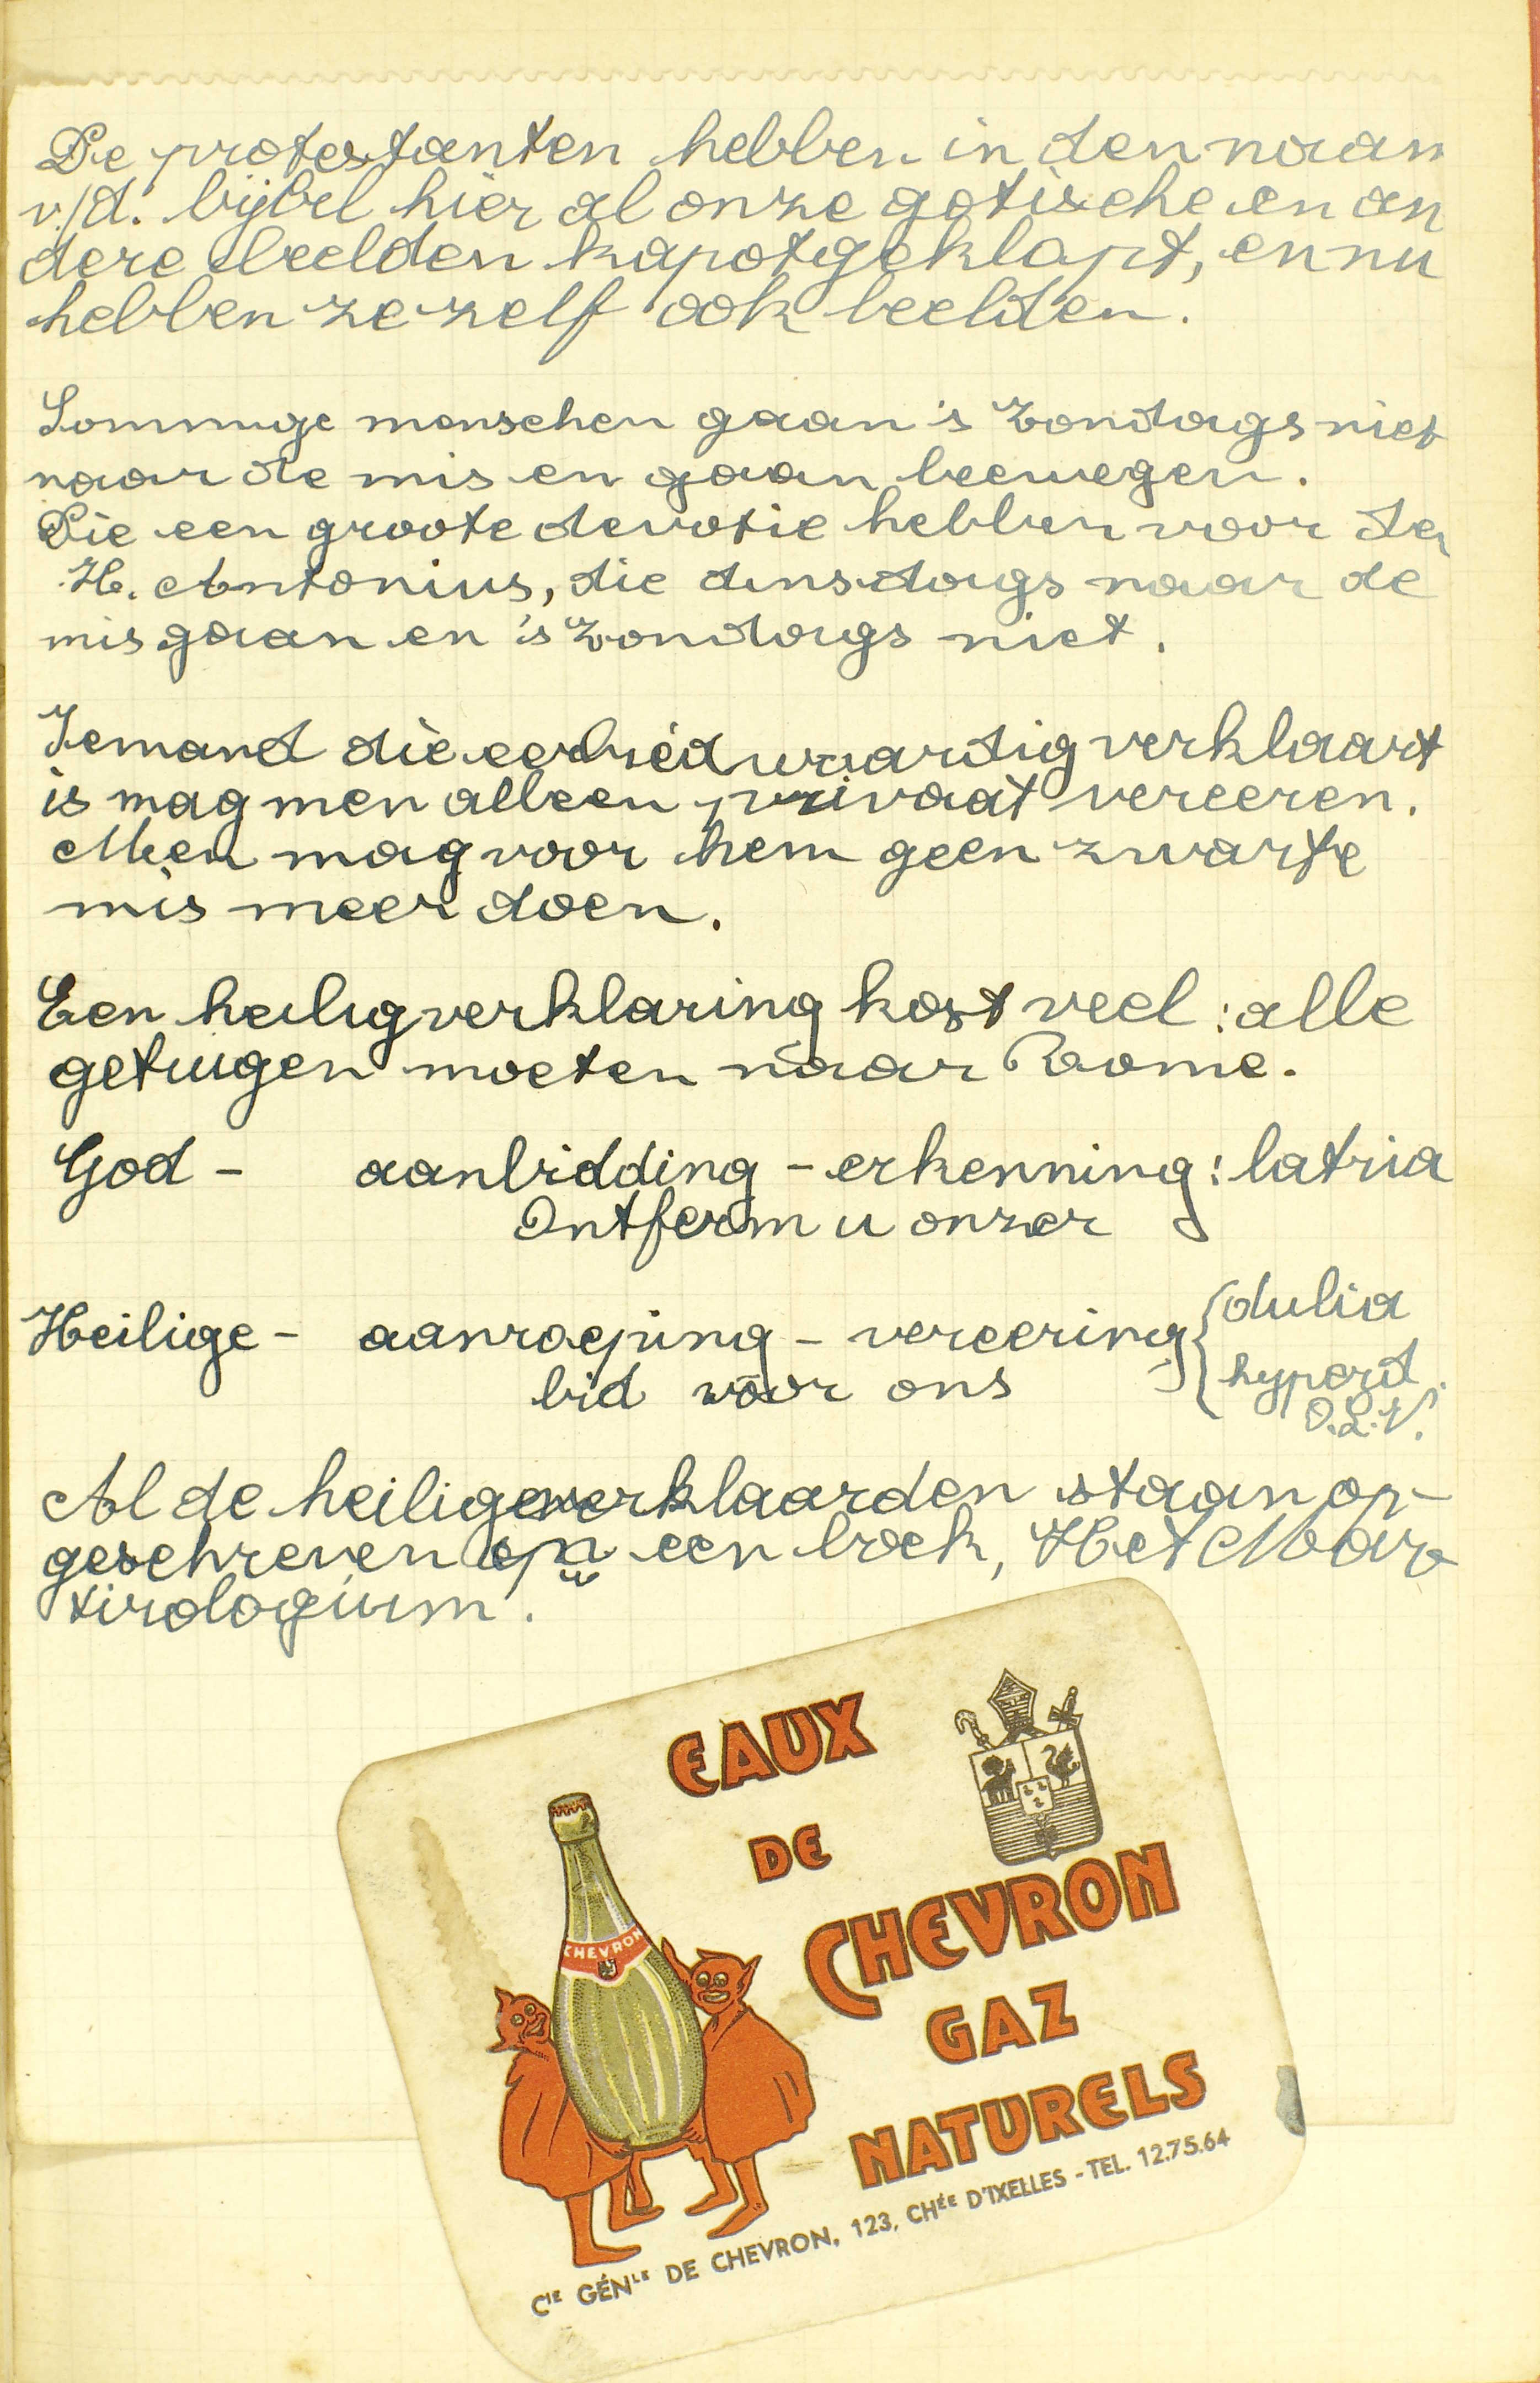 De protestanten hebben in den naam
v/d. bijbel hier al onze gotische en an
dere beelden kapotgeklapt, en nu
hebben ze zelf ook beelden.
Sommige menschen gaan 's Zondags niet
naar de mis en gaan beewegen.
Die een groote devotie hebben voor de
H. Antonius, die dinsdags naar de
mis gaan en 's Zondags niet.
Iemand die eerbiedwaardig verklaart
is mag men alleen privaat vereeren.
Men mag voor hem geen zwarte
mis meer doen.
Een heiligverklaring kost veel: alle
getuigen moeten naar Rome.
God - aanbidding - erkenning: latria
Ontferm u onzer
Heilige - aanroeping - vereering { dulia
bid voor ons hyperd.
O.L.V.
Al de heiligverklaarden staan op-
geschreven in een boek, Het Mar
tirologium.
EAUX
DE
CHEVRON
GAZ
NATURELS
CHEVRON
CIE GÉNLE DE CHEVRON, 123, CHÉE D'IXELLES - TEL. 12.75.64